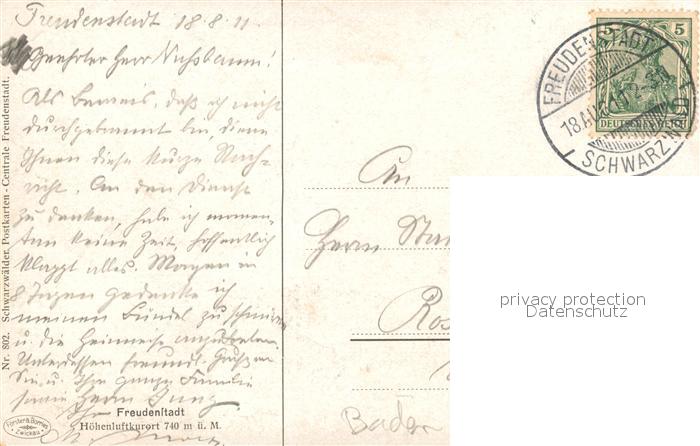 Freudenstadt 18.8.11
Geehrter Herr Nußbaum!
Als Beweis, daß ich nicht
durchgebrannt bin, diene
Ihnen diese kurze Nach-
richt. An den Dienst
zu denken, habe ich momen-
tan keine Zeit, hoffentlich
klappt alles. Morgen in
8 Tagen gedenke ich
meinen Bündel zu schnüren
u. die Heimreise anzutreten.
Unterdessen freundl. Grüße an
Sie u. Ihre ganze Familie
sowie Herrn Jung
Ihr
Freudenstadt
Höhenluftkurort 740 m ü. M.
Förster & Borries
Zwickau
Nr. 802. Schwarzwälder, Postkarten-Centrale Freudenstadt.
5 5
DEUTSCHES REICH
FREUDENSTADT
18.AUG.11
SCHWARZW.
An
Herrn
Baden
privacy protection
Datenschutz